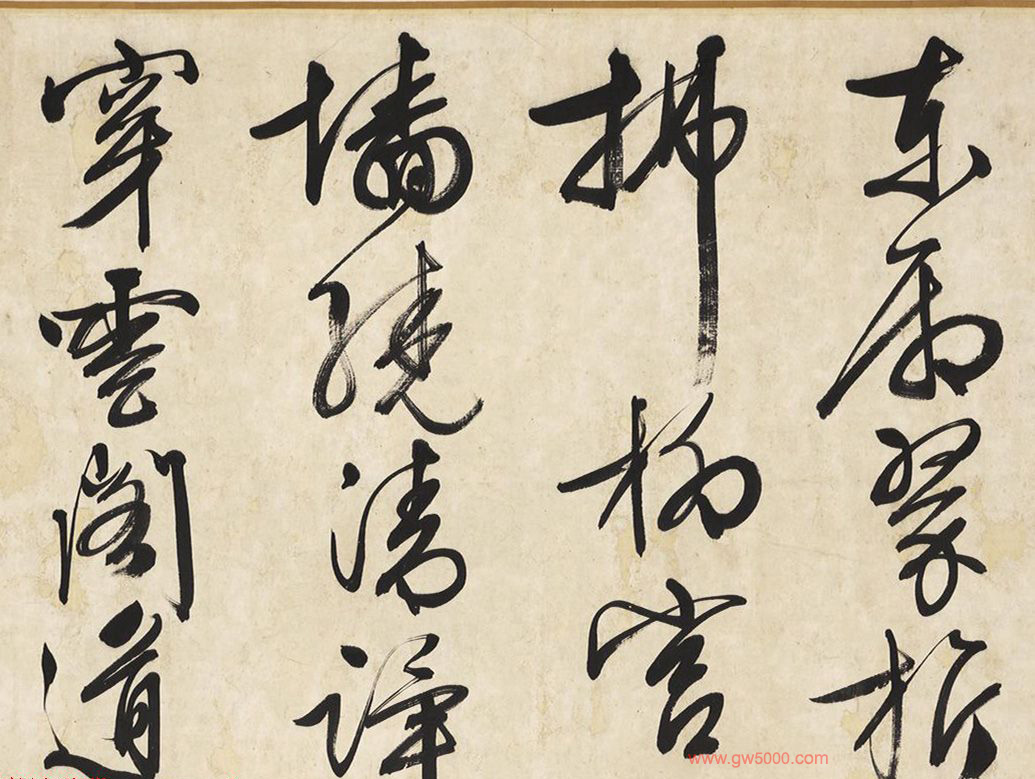 東翠旂
拂柳宮
墻繞清蹕
穿雲閣道
www.gw5000.com